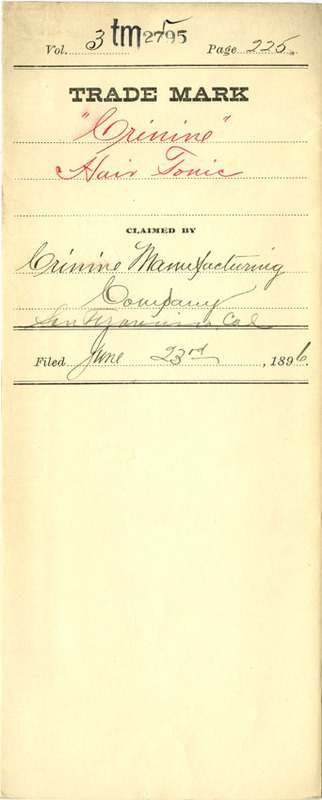 Vol. 3 tm 2795 Page 225.
TRADE MARK
"Crinine"
Hair Tonic
CLAIMED BY
Crinine Manufacturing
Company
San Francisco, Cal
Filed June 23rd, 1896